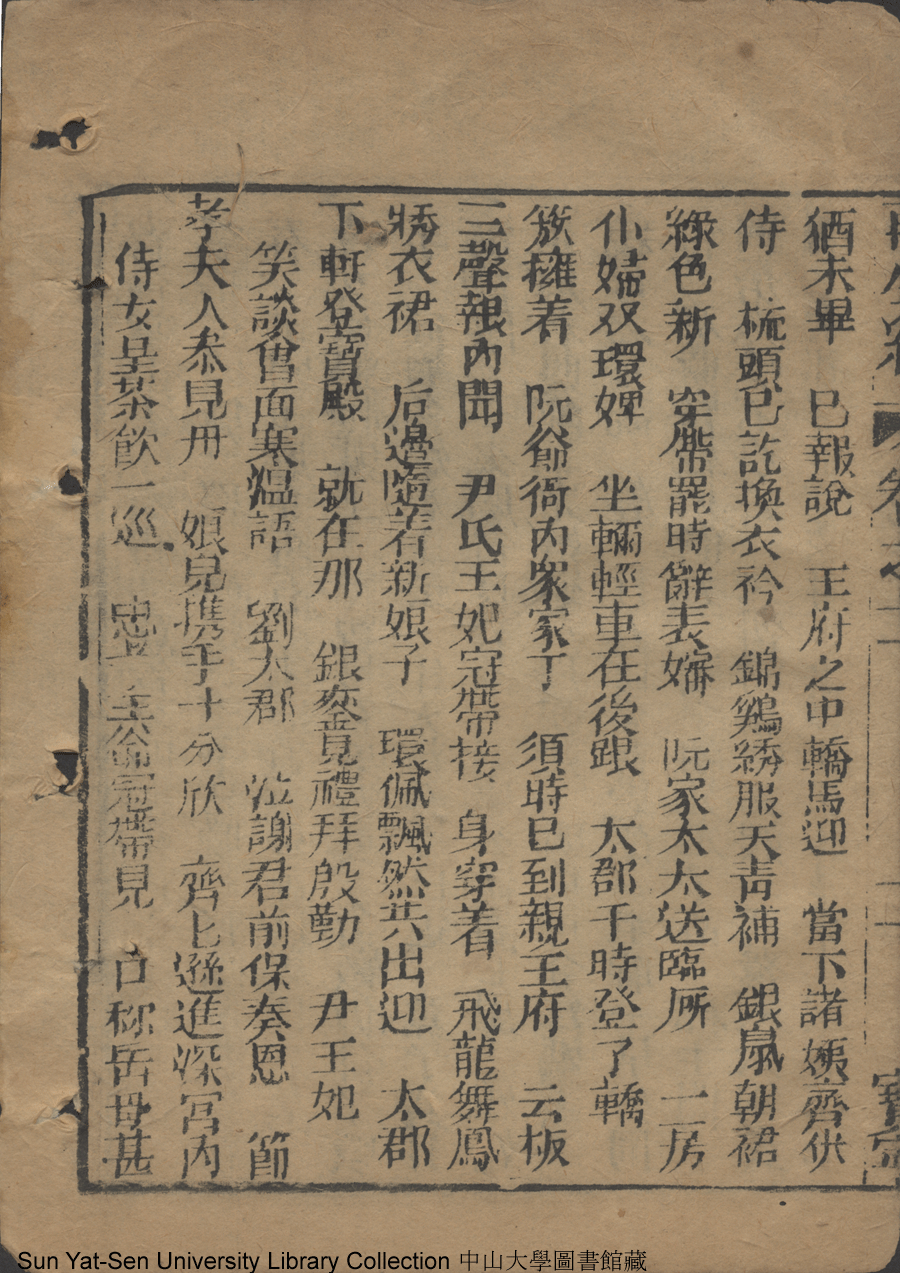 猶未畢 已報說 王府之中轎馬迎 當下諸姨齊伏
侍 梳頭已訖換衣衿 錦鷄綉服天青補 銀扇朝裙
綠色新 穿帶罷時辭表嬸 阮家太太送臨厛 二房
仆婦双環婢 坐輛輕車在後跟 太郡干時登了轎
簇擁着 阮爺衙內衆家丁 須時已到親王府 云板
三聲報內聞 尹氏王妃冠帶接 身穿着 飛龍舞鳳
綉衣裙 后邊隨着新娘子 環佩飄然共出迎 太郡
下軒登寶殿 就在那 銀鑾見禮拜殷勤 尹王妃
笑談會面寒溫語 劉太郡 泣謝君前保奏恩 節
孝夫人叅見毌 娘兒携手十分欣 齊匕遜進深宮內
侍女呈茶飲一巡 忠 王 冠帶見 口称岳毌甚
Sun Yat-Sen University Library Collection 中山大學圖書館藏